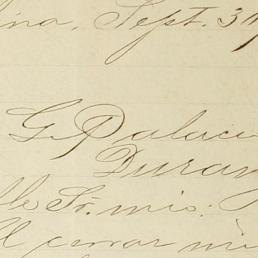 Sept. 3
G. Palaci
Duran
lle Sr. mio:
Al cerrar mi